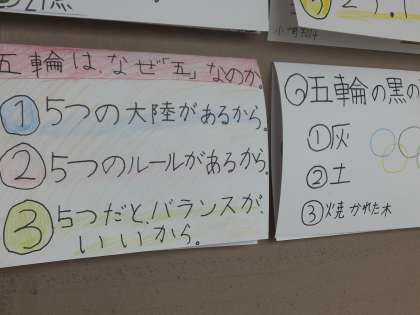 五輪は、なぜ「五」なのか。
① 5つの大陸があるから。
② 5つのルールがあるから。
③ 5つだと、バランスが、
いいから。
五輪の黒の
① 灰
② 土
③ 焼かれた木